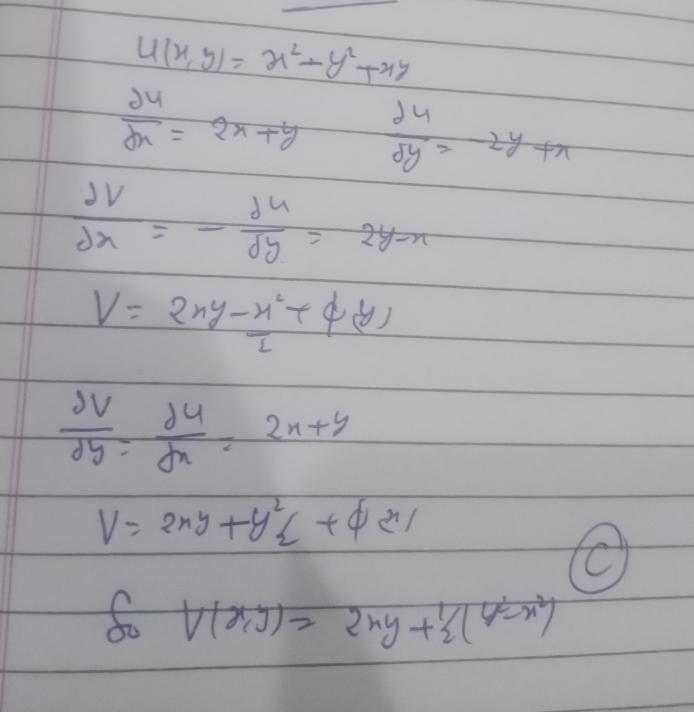 u(x,y) = x² - y² + xy
∂u/∂x = 2x + y    ∂u/∂y = -2y + x
∂V/∂x = - ∂u/∂y = 2y - x
V = 2xy - x²/2 + ϕ(y)
∂V/∂y = ∂u/∂x = 2x + y
V = 2xy + y²/2 + ϕ(x)
C
So V(x,y) = 2xy + 1/2 (y² - x²)